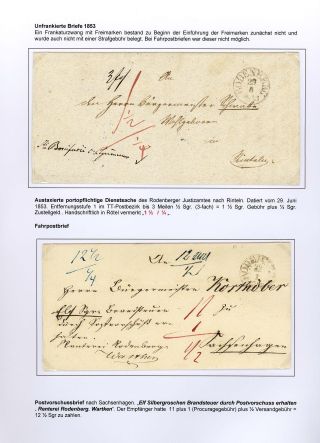 Unfrankierte Briefe 1853
Ein Frankaturzwang mit Freimarken bestand zu Beginn der Einführung der Freimarken zunächst nicht und
wurde auch nicht mit einer Strafgebühr belegt. Bei Fahrpostbriefen war dieser nicht möglich.
An
den Herrn Bürgermeister Schwabe
Wohlgeboren
Rinteln
1
1/2
1/4
Austaxierte portopflichtige Dienstsache des Rodenberger Justizamtes nach Rinteln. Datiert vom 29. Juni
1853. Entfernungsstufe 1 im TT-Postbezirk bis 3 Meilen ½ Sgr. (3-fach) = 1 ½ Sgr. Gebühr plus ¼ Sgr.
Zustellgeld . Handschriftlich in Rötel vermerkt „1 ½ / ¼ „.
Fahrpostbrief
12 1/2
1/4
An
Herrn Bürgermeister
Elf Sgr. Brandsteuer zu
durch Postvorschuß
erhalten.
Renterei Rodenberg.
Sachsenhagen
11
1
1/2
Postvorschussbrief nach Sachsenhagen. „Elf Silbergroschen Brandsteuer durch Postvorschuss erhalten
. Renterei Rodenberg. Wartken“. Der Empfänger hatte 11 plus 1 (Procuragebühr) plus ½ Versandgebühr =
12 ½ Sgr zu zahlen.